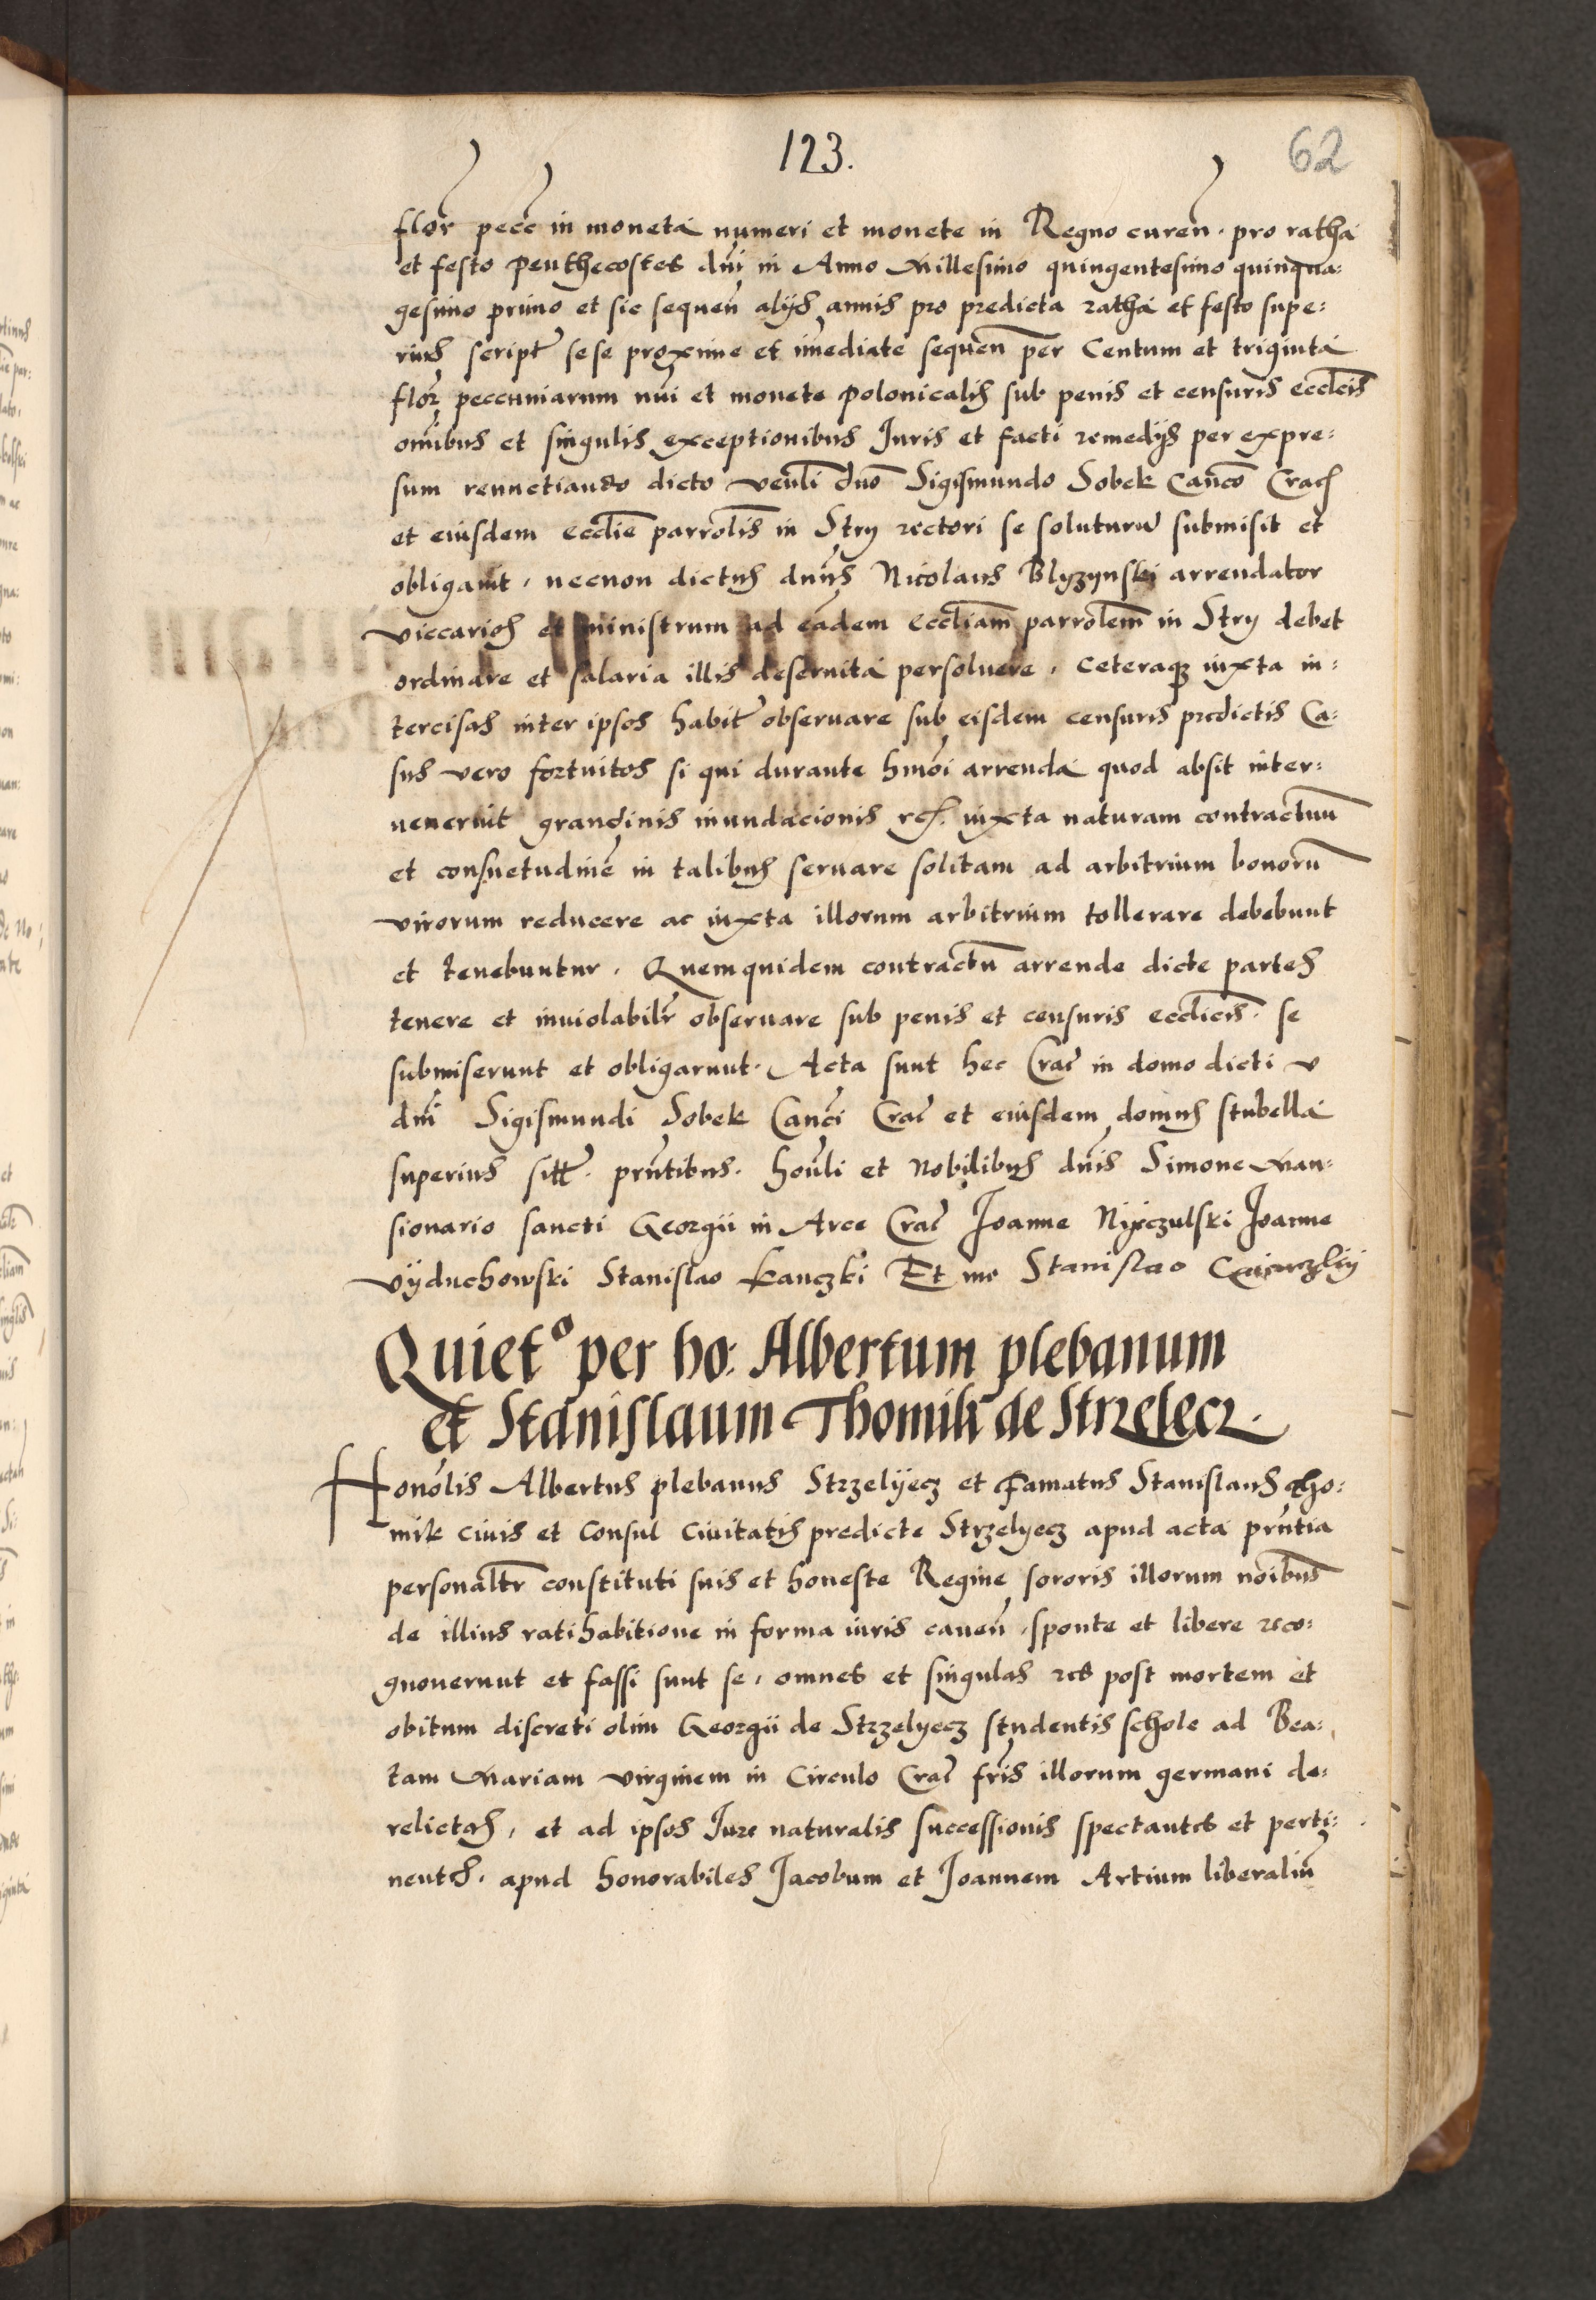 123.
62
flor pecc in moneta numeri et monete in Regno curen. pro ratha
et festo Penthecostes dni in Anno Millesimo quingentesimo quinqua:
gesimo primo et sic sequen alijs annis pro predicta ratha et festo supe:
rius script sese proxime et imediate sequen per Centum et triginta
flor peccuniarum nui et monete Polonicalis sub penis et censuris ecclcis
omibus et singulis exceptionibus Iuris et facti remedijs per expre:
sum renuctiando dicto venli dno Sigismundo Sobek Canco Crac
et eiusdem ecclie parrolis in Stry rectori se soluturum submisit et
obligavit, necnon dictus dnus Nicolaus Blyzynski arrendator
viccarios et ministrum ad eadem eccliam parrolem in Stry debet
ordinare et salaria illis deservita persolvere, ceteraque iuxta in:
tercisas inter ipsos habit observare sub eisdem censuris predictis Ca:
sus vero fortuitos si qui durante hmoi arrenda quod absit inter:
venerint grandinis inundacionis rc. iuxta naturam contractuu
et consuetudine in talibus servare solitam ad arbitrium bonoru
virorum reducere ac iuxta illorum arbitrium tollerare debebunt
et tenebuntur. Quemquidem contractu arrende dicte partes
tenere et inviolabilr observare sub penis et censuris ecclicis. se
submiserunt et obligarunt. Acta sunt hec Crac in domo dicti v
dni Sigismundi Sobek Canci Crac et eiusdem domus stubella
superius sitt. pruntibus. honli et Nobilibus dnis Simone Man:
sionario sancti Georgii in Arce Crac Joanne Joanne
Vÿduchowski Stanislao Kanczki Et me Stanislao
Quieto per ho: Albertum plebanum
et Stanislaum Thomik de Strzelecz.
Honolis Albertus plebanus Strzelÿecz et Famatus Stanislaus Tho:
mik civis et Consul Civitatis predicte Strzelyecz apud acta pruntia
personaltr constituti suis et honeste Regine sororis illorum noibus
de illius ratihabitione in forma iuris caven, sponte et libere reco:
gnoverunt et fassi sunt se, omnes et singulas res post mortem et
obitum discreti olim Georgii de Strzelyecz studentis schole ad Bea:
tam Mariam virginem in Circulo Crac fris illorum germani de:
relictas, et ad ipsos Iure naturalis successionis spectantes et perti:
nentes. apud honorabiles Jacobum et Joannem Artium liberaliu